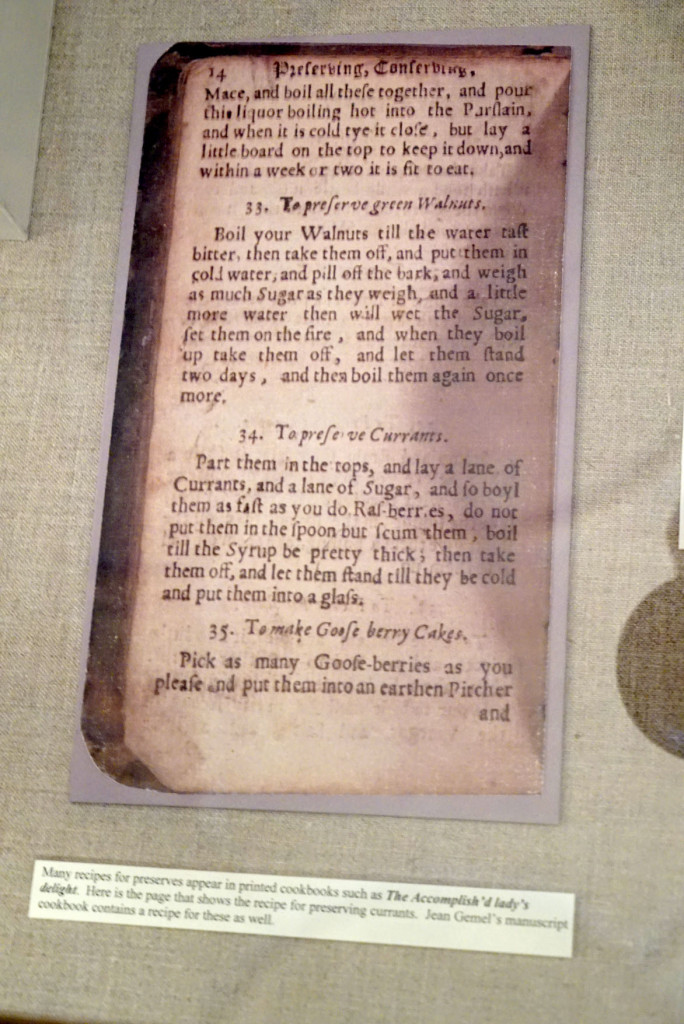 14 Preserving, Conserving,
Mace, and boil all these together, and pour
this liquor boiling hot into the Purslain,
and when it is cold tye it close, but lay a
little board on the top to keep it down, and
within a week or two it is fit to eat.
33. To preserve green Walnuts.
Boil your Walnuts till the water tast
bitter, then take them off, and put them in
cold water, and pill off the bark, and weigh
as much Sugar as they weigh, and a little
more water then will wet the Sugar,
set them on the fire, and when they boil
up take them off, and let them stand
two days, and then boil them again once
more.
34. To preserve Currants.
Part them in the tops, and lay a lane of
Currants, and a lane of Sugar, and so boyl
them as fast as you do Ras-berries, do not
put them in the spoon but scum them, boil
till the Syrup be pretty thick; then take
them off, and let them stand till they be cold
and put them into a glass.
35. To make Goose berry Cakes.
Pick as many Goose-berries as you
please and put them into an earthen Pitcher
and
Many recipes for preserves appear in printed cookbooks such as The Accomplish'd lady's
delight. Here is the page that shows the recipe for preserving currants. Jean Gemel's manuscript
cookbook contains a recipe for these as well.